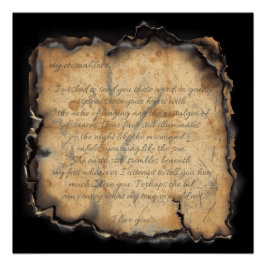 my eternal love,
I wished to send you these words to gently
into your heart with
the ache of longing and the nostalgia of
distance. Your face still illuminates
the night like the moon and
unfolds yearning like the sun.
The earth still trembles beneath
my feet whenever I attempt to tell you how
much I love you. Perhaps the ink
can convey what my tongue could not.
I love you